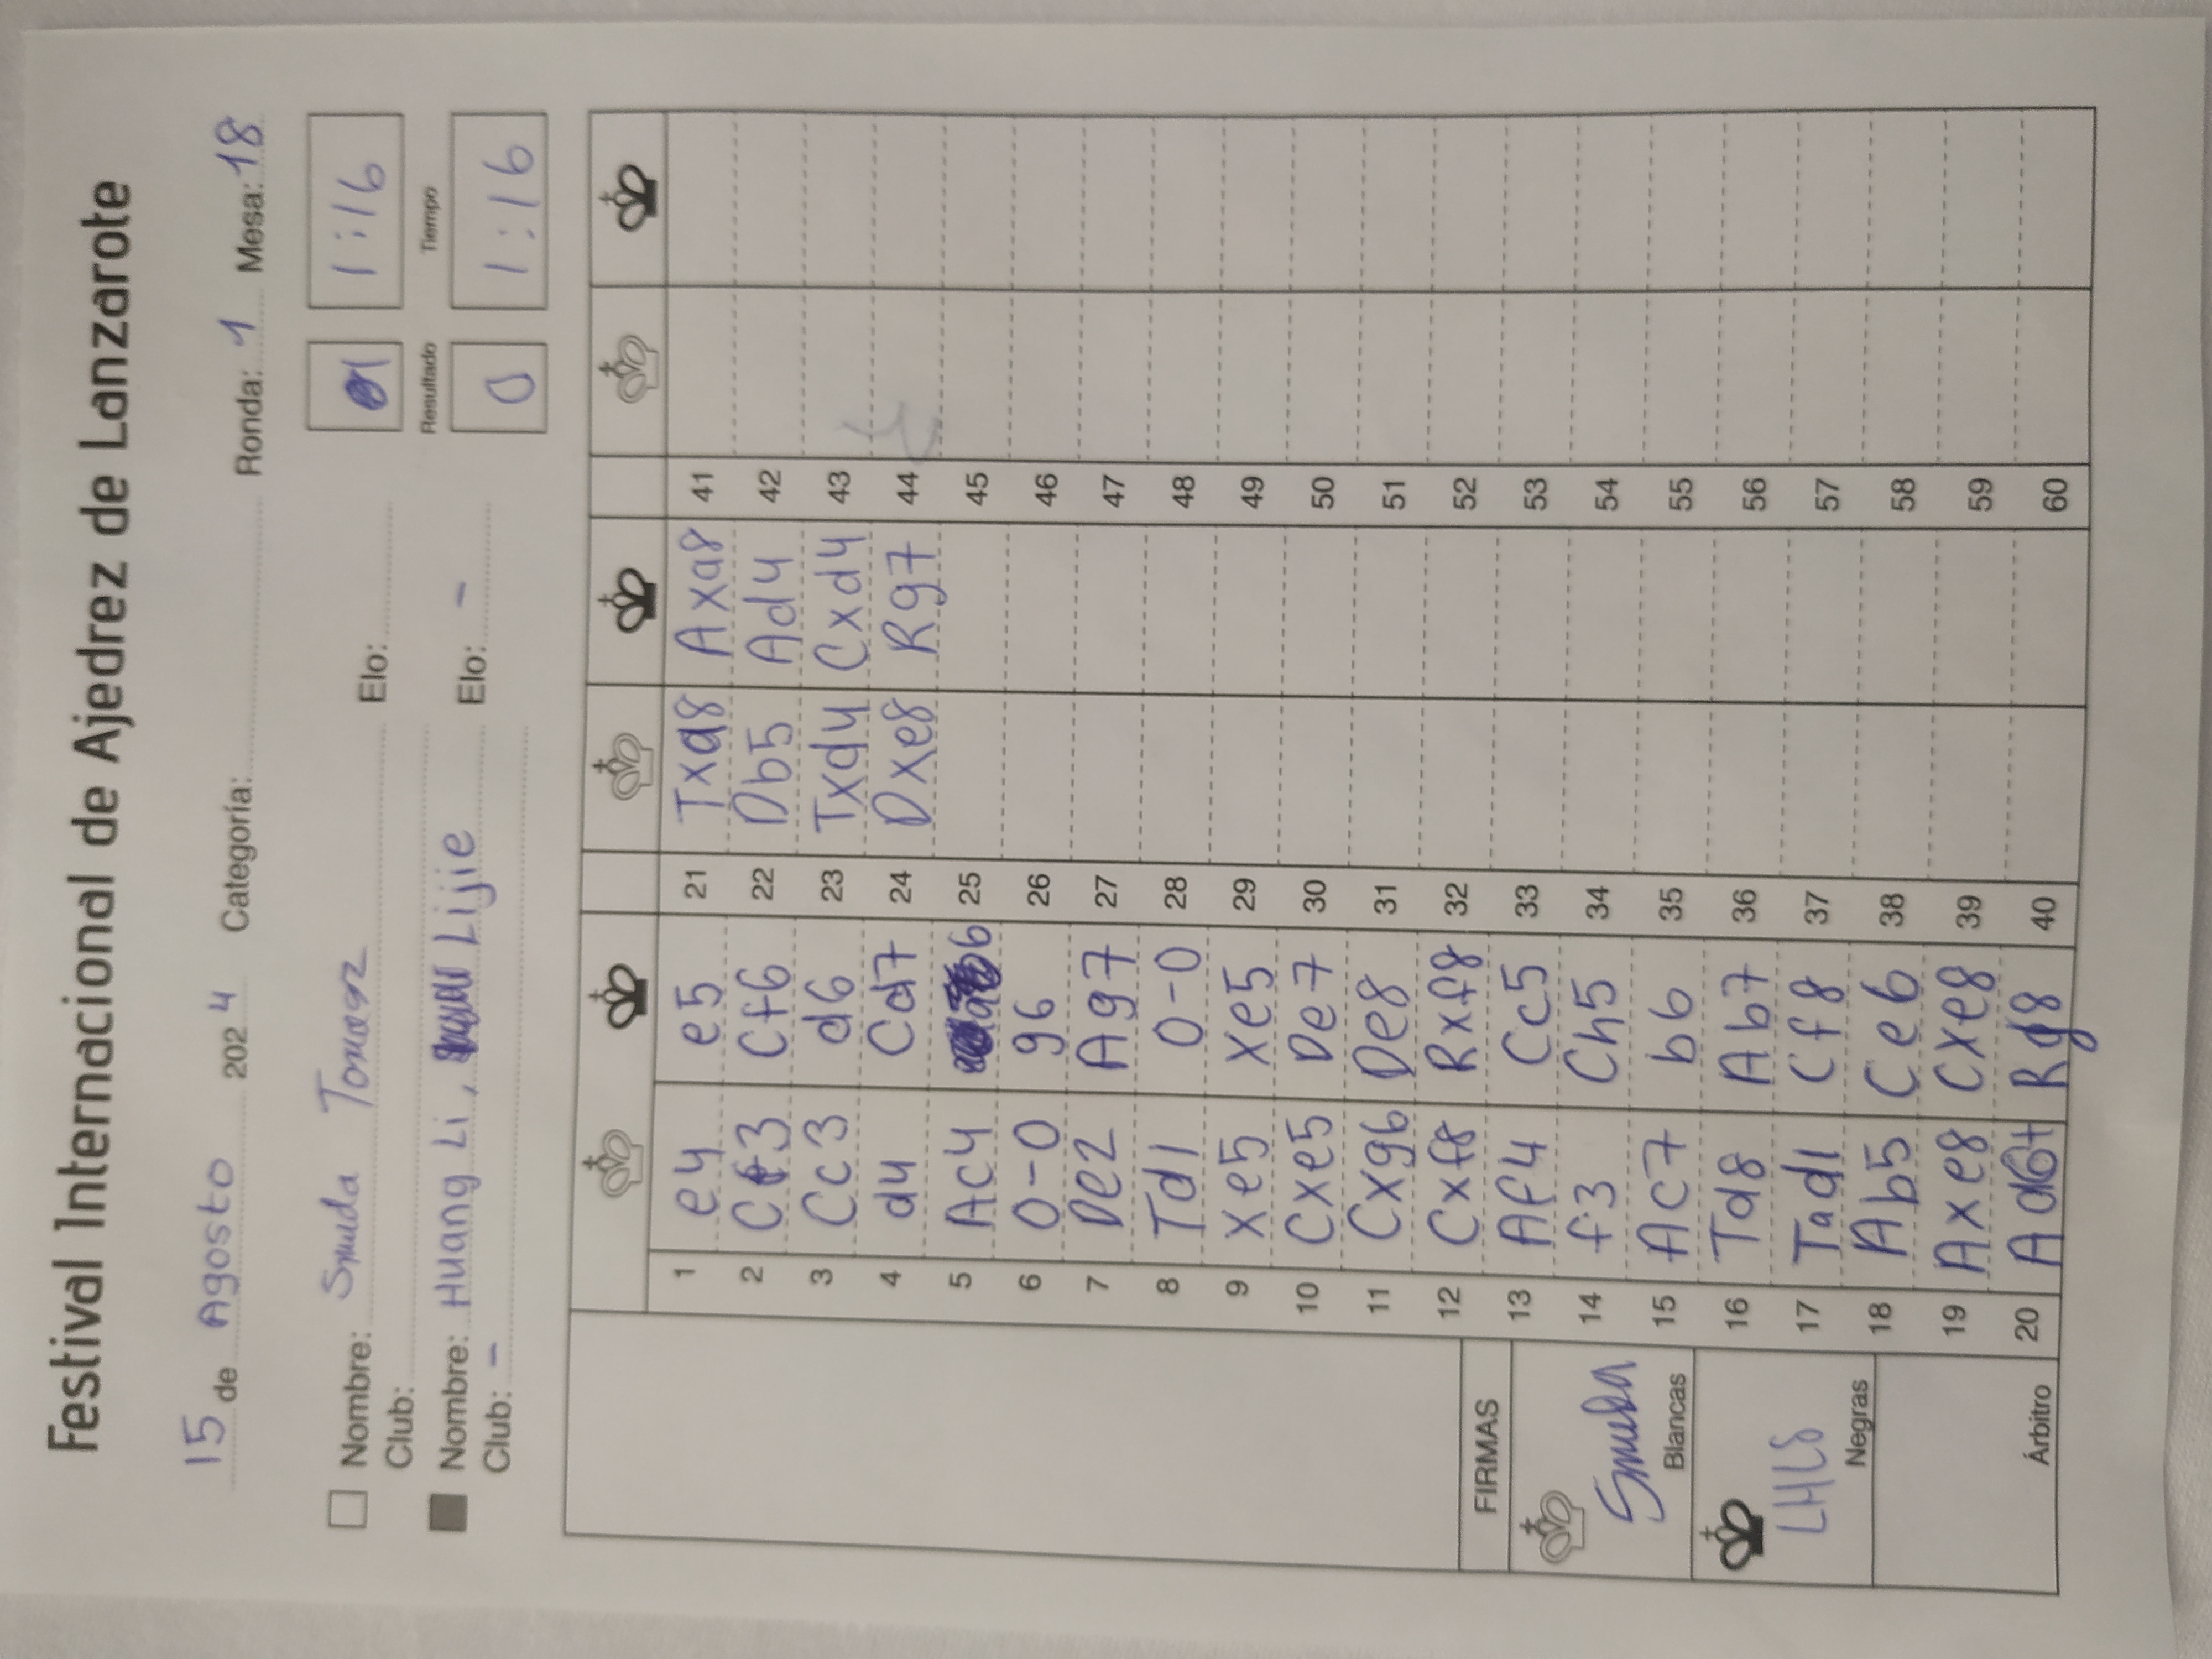 Festival Internacional de Ajedrez de Lanzarote
15 de Agosto 2024 Categoría: Ronda: 1 Mesa: 18
Nombre: Smuda Tomasz Elo: 1 1:16
Club:
Resultado Tiempo
Nombre: Huang Li, Lijie Elo: - 0 1:16
Club: -
1 e4 e5 21 Txa8 Axa8 41
2 Cf3 Cf6 22 Db5 Ad4 42
3 Cc3 d6 23 Txd4 Cxd4 43
4 d4 Cd7 24 Dxe8 Rg7 44
5 Ac4 25 45
6 0-0 g6 26 46
7 De2 Ag7 27 47
8 Td1 0-0 28 48
9 xe5 xe5 29 49
10 Cxe5 De7 30 50
11 Cxg6 De8 31 51
12 Cxf8 Rxf8 32 52
13 Af4 Cc5 33 53
14 f3 Ch5 34 54
15 Ac7 b6 35 55
16 Td8 Ab7 36 56
17 Tad1 Cf8 37 57
18 Ab5 Ce6 38 58
19 Axe8 Cxe8 39 59
20 Ad6+ Rg8 40 60
FIRMAS
Smuda
Blancas
LHLS
Negras
Árbitro